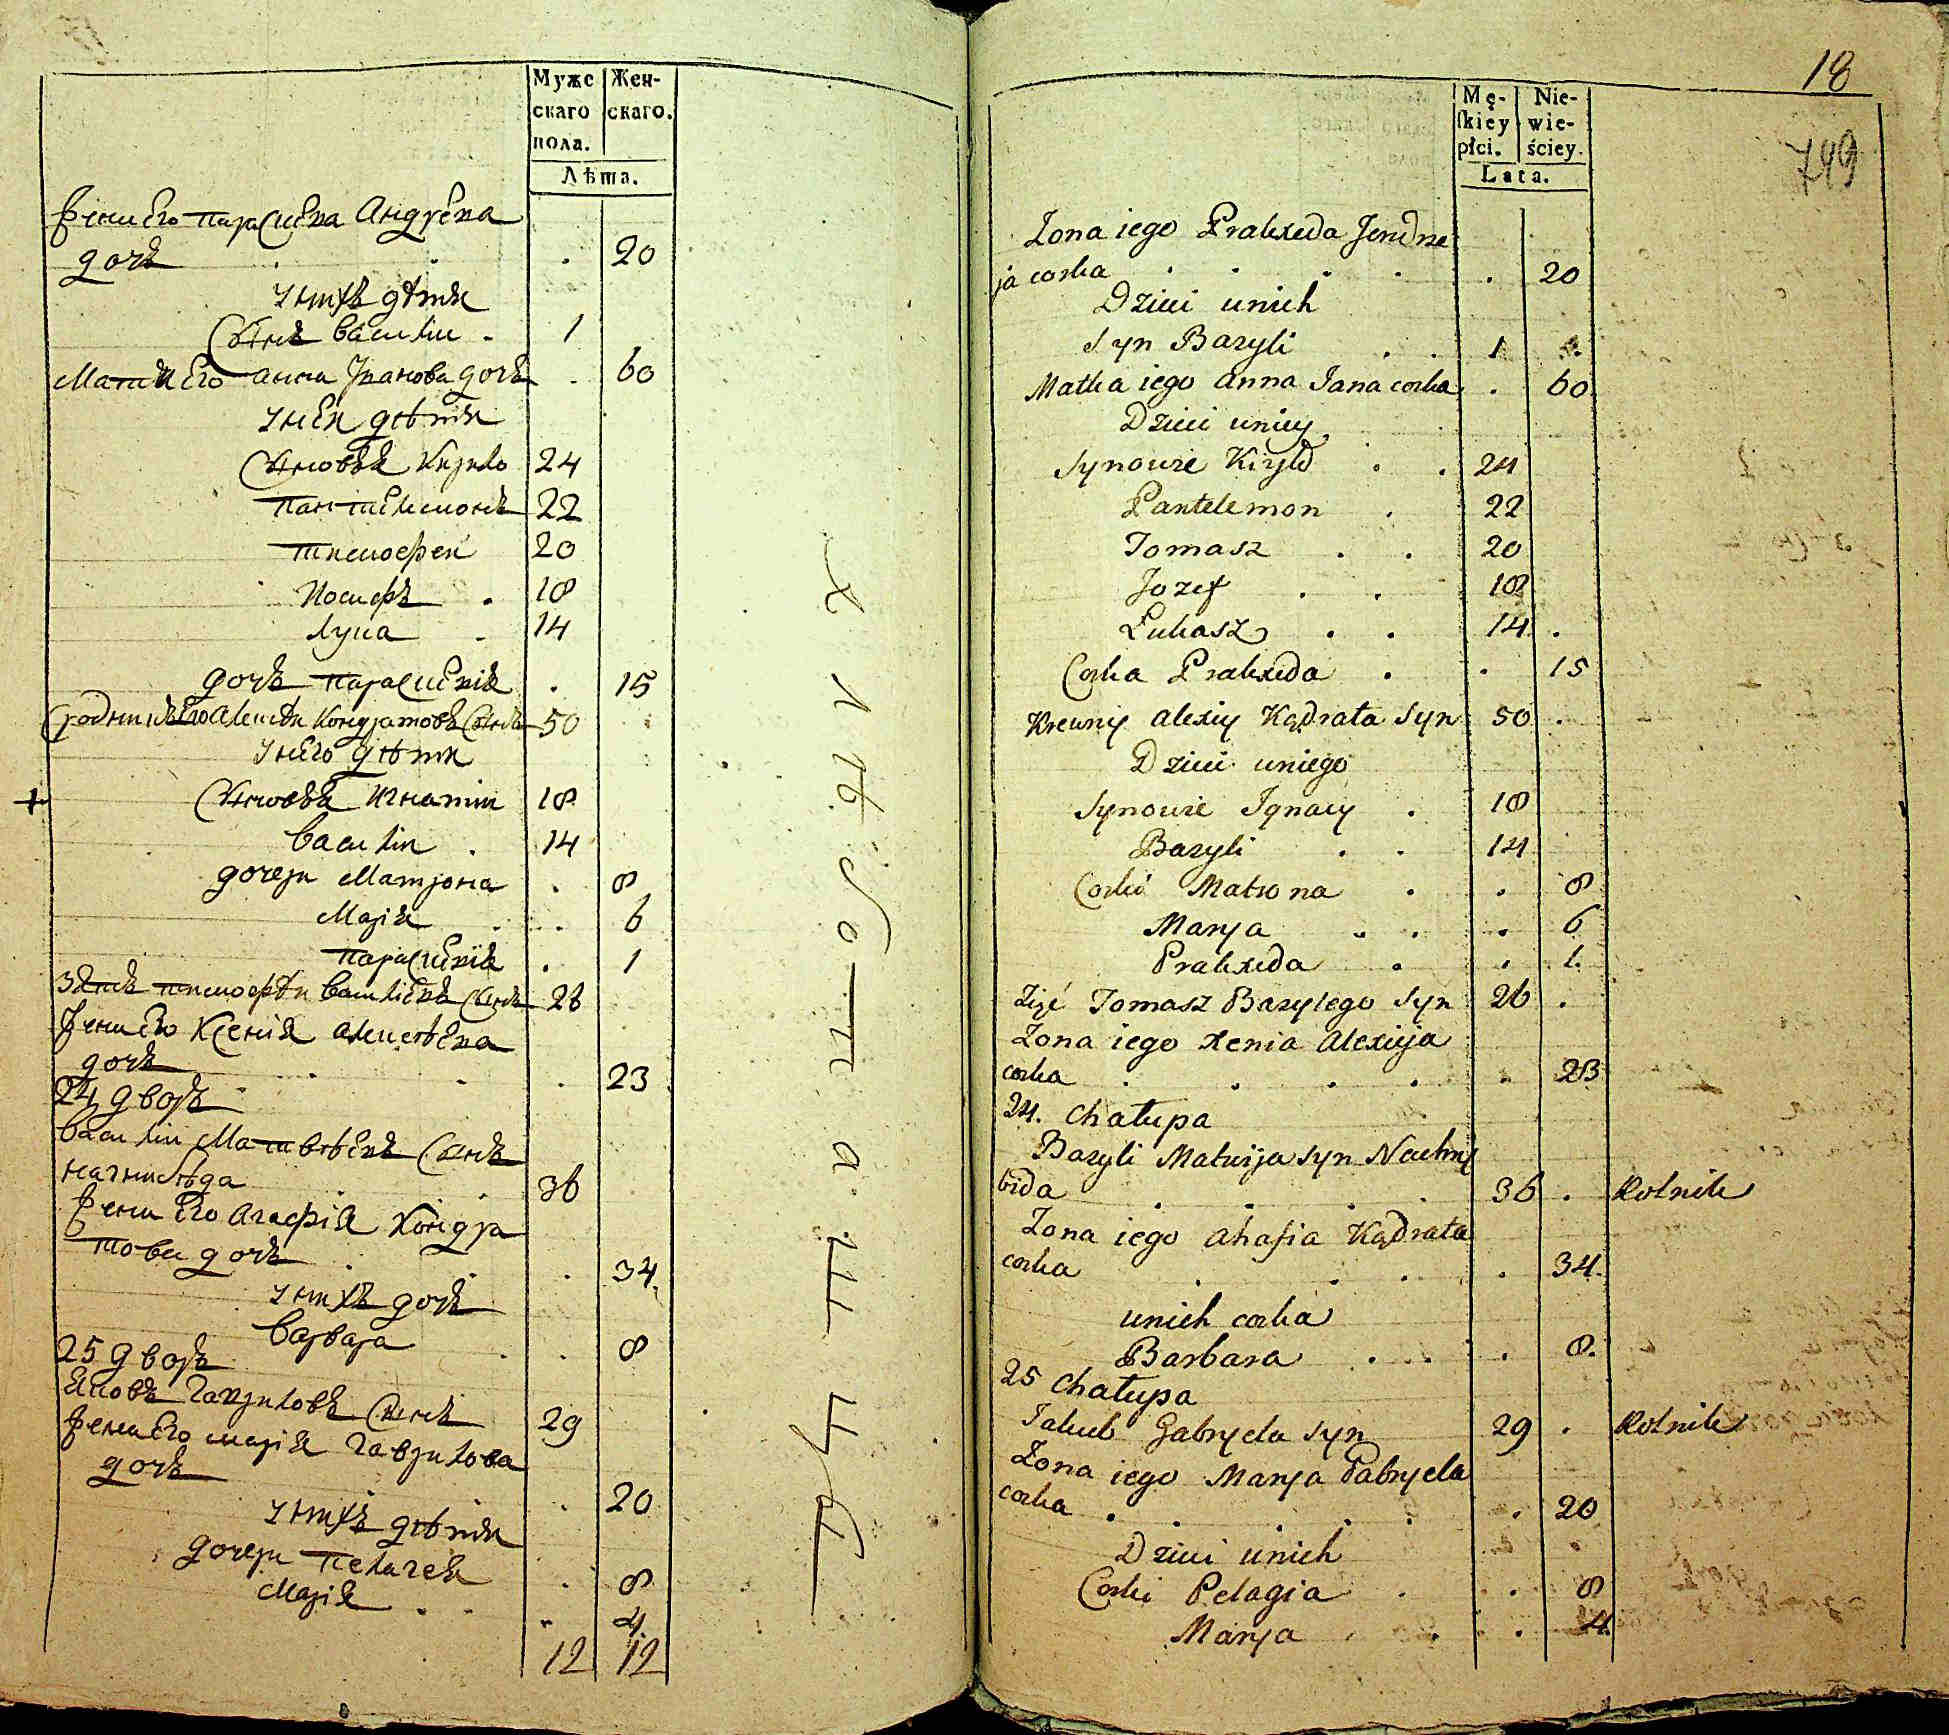 Муже
скаго
пола.
Жен-
скаго.
Лѣта.
жена Его Параскева Андреева
дочь . . . 20
У нихъ дѣти
Сынъ Василии . 1
Мати Его анна Іванова дочь . 60
У неи дѣти
Сыновья Кирило 24
Пантелемонъ 22
тимофеи 20
Иосифъ . 18
Лука . 14
дочь Параскевия . 15
Сродникъ Его алексѣи Кондратовъ Сынъ 50
У него дѣти
+ Сыновья Игнатии 18
Василии . 14
дочери Матрона . 8
Марія . . 6
Параскевія . 1
Зять тимофѣи Василіевъ Сынъ 26
жена Его Ксенія алексѣева
дочь . . . . 23
24 дворъ
Василии Матвѣевъ Сынъ
Начнибѣда . . 36
жена Его Агафія Кондра
това дочь . . . 34.
У нихъ дочь
Варвара . . 8
25 дворъ
Яковъ Гавриловъ Сынъ 29
жена Его марія Гаврилова
дочь . . 20
У нихъ дѣти
дочери Пелагея . 8
Марія . . . 4.
12 12
18
749
Mę-
ſkiey
płci.
Nie-
wie-
ściey.
Lata.
Zona iego Praxeda Jendrze
ja corka . . . . . 20
Dzieci unich
Syn Bazyli . . 1 .
Matka iego anna Jana corka . 60
Dzieci uniey
Synowie Kiryło . . 24
Pantelemon . 22
Tomasz . . 20
Jozef . . 18
Łukasz . . 14 .
Corka Praxeda . . 15
Krewny alexiy Kądrata Syn 50 .
Dzieci uniego
Synowie Ignacy . 18
Bazyli . . 14
Corki Matrona . . 8
Marya . . . 6
Praxeda . . 1.
Zięć Tomasz Bazylego Syn 26 .
Zona iego Xenia alexieja
corka . . . . . 23
24. Chałupa
Bazyli Matwija Syn Nachny
bida . . . . 36 . Rolnik
Zona iego ahafia Kądrata
corka . . . . 34.
unich corka
Barbara . . . 8.
25 Chałupa
Jakub Gabryela Syn 29 . Rolnik
Zona iego Marya Gabryela
corka . . . . . . 20
Dzieci unich
Corki Pelagia . . 8
Marya . . . 4.